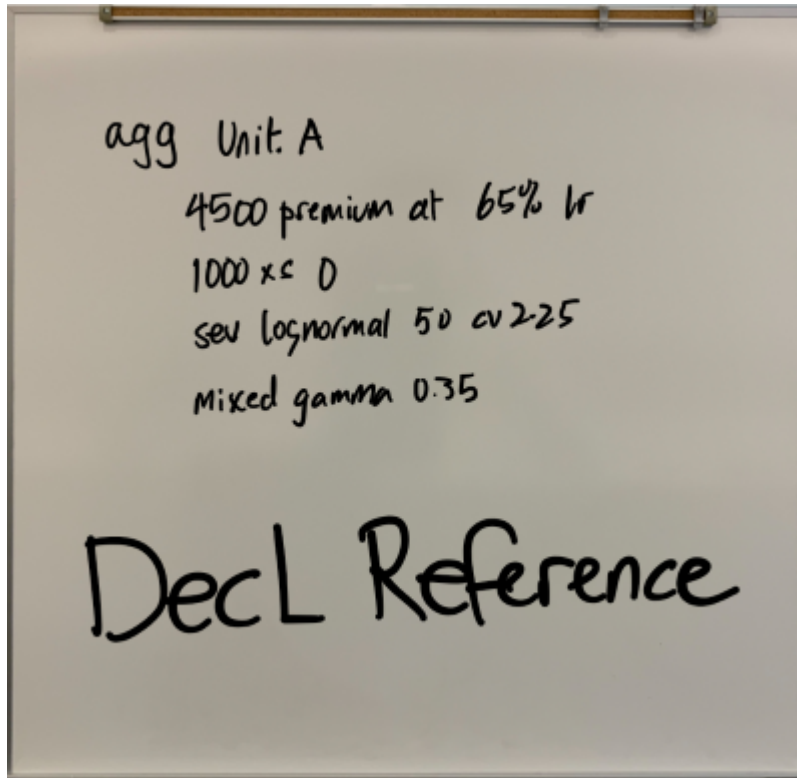 agg Unit. A
4500 premium at 65% lr
1000 xs 0
sev lognormal 50 cv 2.25
mixed gamma 0.35
DecL Reference